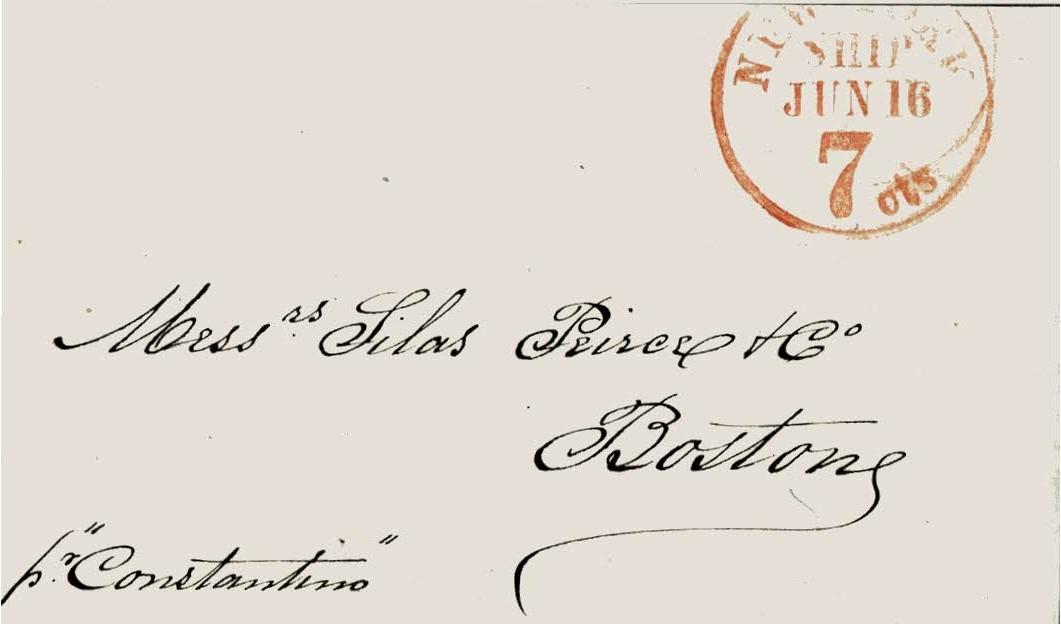 NEW YORK
SHIP
JUN 16
7 cts
Mess.rs Silas Peirce & Co
Boston
p.r "Constantino"